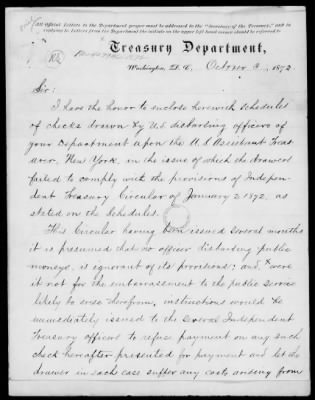 All official Letters to the Department proper must be addressed to the "Secretary of the Treasury," and in
replying to Letters from the Department the initials on the upper left hand corner should be referred to
Treasury Department,
Washington, D. C., October 3, 1872
Sir:
I have the honor to enclose herewith schedules
of checks drawn by U.S. disbursing officers of
your Department upon the U.S. Assistant Treas-
urer, New York, in the issue of which the drawers
failed to comply with the provisions of Indepen-
dent Treasury Circular of January 2 1872, as
stated on the Schedules.
This Circular having been issued several months
it is presumed that no officer disbursing public
moneys, is ignorant of its provisions; and, were
it not for the embarrassment to the public service
likely to ensue therefrom, instructions would be
immediately issued to the several Independent
Treasury officers to refuse payment on any such
check hereafter presented for payment and let the
drawer in each case suffer any costs arising from